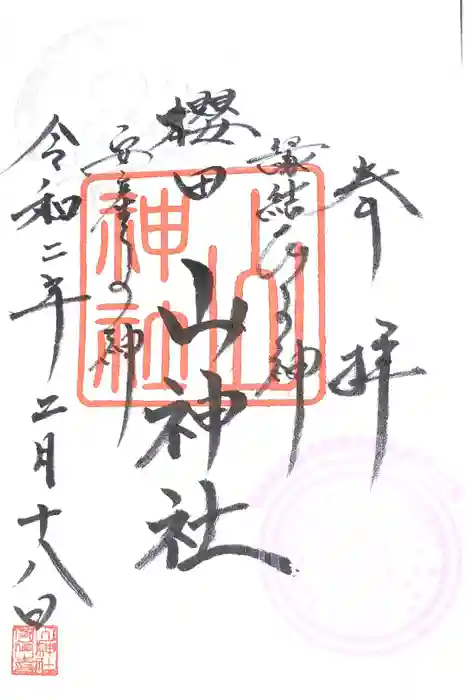 奉拝
縁結びの神
櫻田
山神社
安産の神
令和二年二月十八日
山神社